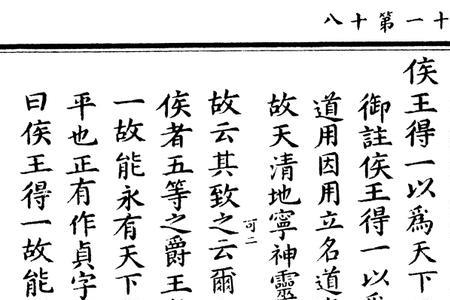 十一第十八
侯王得一以爲天下
御註侯王得一以
道用因用立名道
故天清地寧神靈
可二
故云其致之云爾
侯者五等之爵王
一故能永有天下
平也正有作貞字
曰侯王得一故能